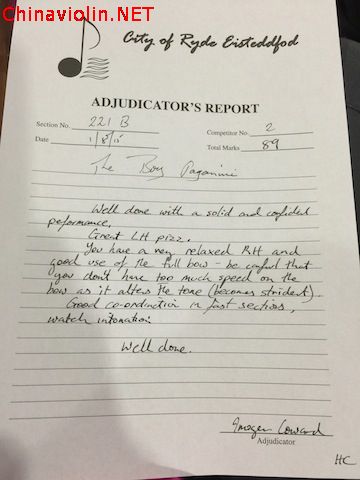 Chinaviolin.NET
City of Ryde Eisteddfod
ADJUDICATOR'S REPORT
Section No. 221 B Competitor No. 2
Date 1/8/15 Total Marks 89
The Boy Paganini
Well done with a solid and confident
peformance.
Great LH pizz.
You have a very relaxed RH and
good use of the full bow - be careful that
you don't have too much speed on the
bow as it alters the tone (becomes strident).
Good co-ordination in fast sections,
watch intonation.
Well done.
Imogen Coward
Adjudicator
HC